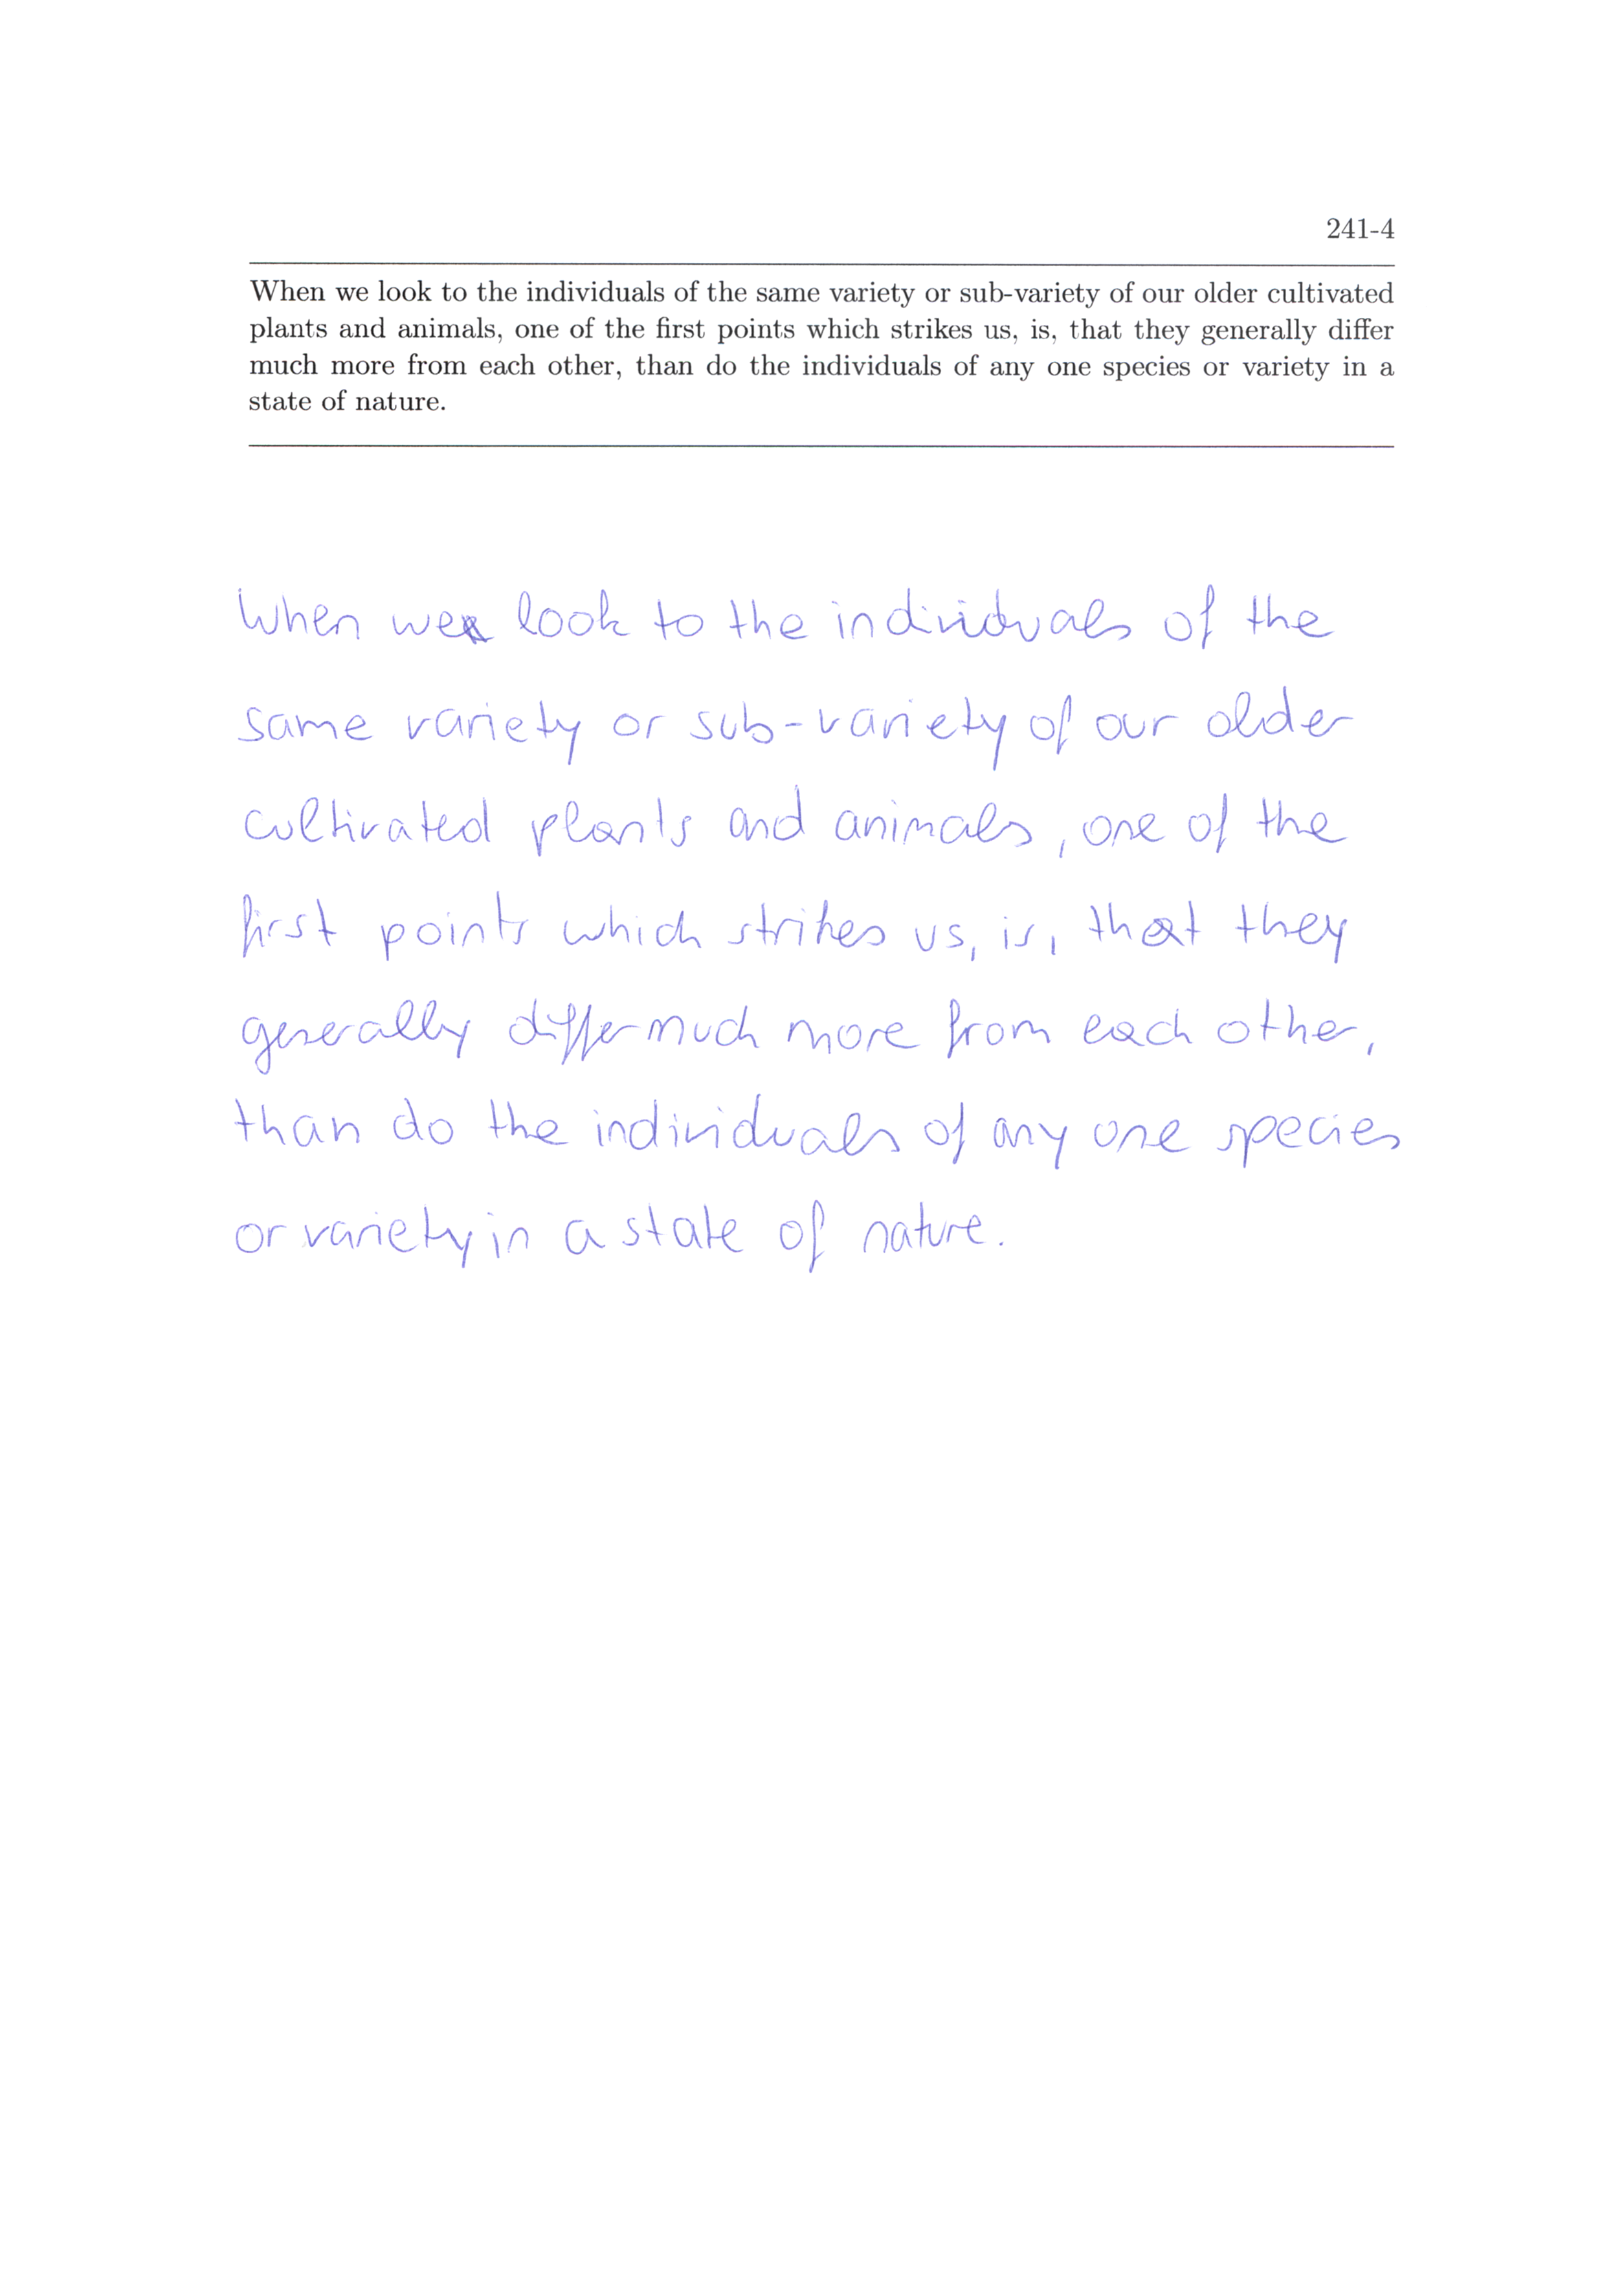 241-4
When we look to the individuals of the same variety or sub-variety of our older cultivated
plants and animals, one of the first points which strikes us, is, that they generally differ
much more from each other, than do the individuals of any one species or variety in a
state of nature.
When we look to the individuals of the
same variety or sub-variety of our older
cultivated plants and animals, one of the
first points which strikes us, is, that they
generally differ much more from each other,
than do the individuals of any one species
or variety in a state of nature.